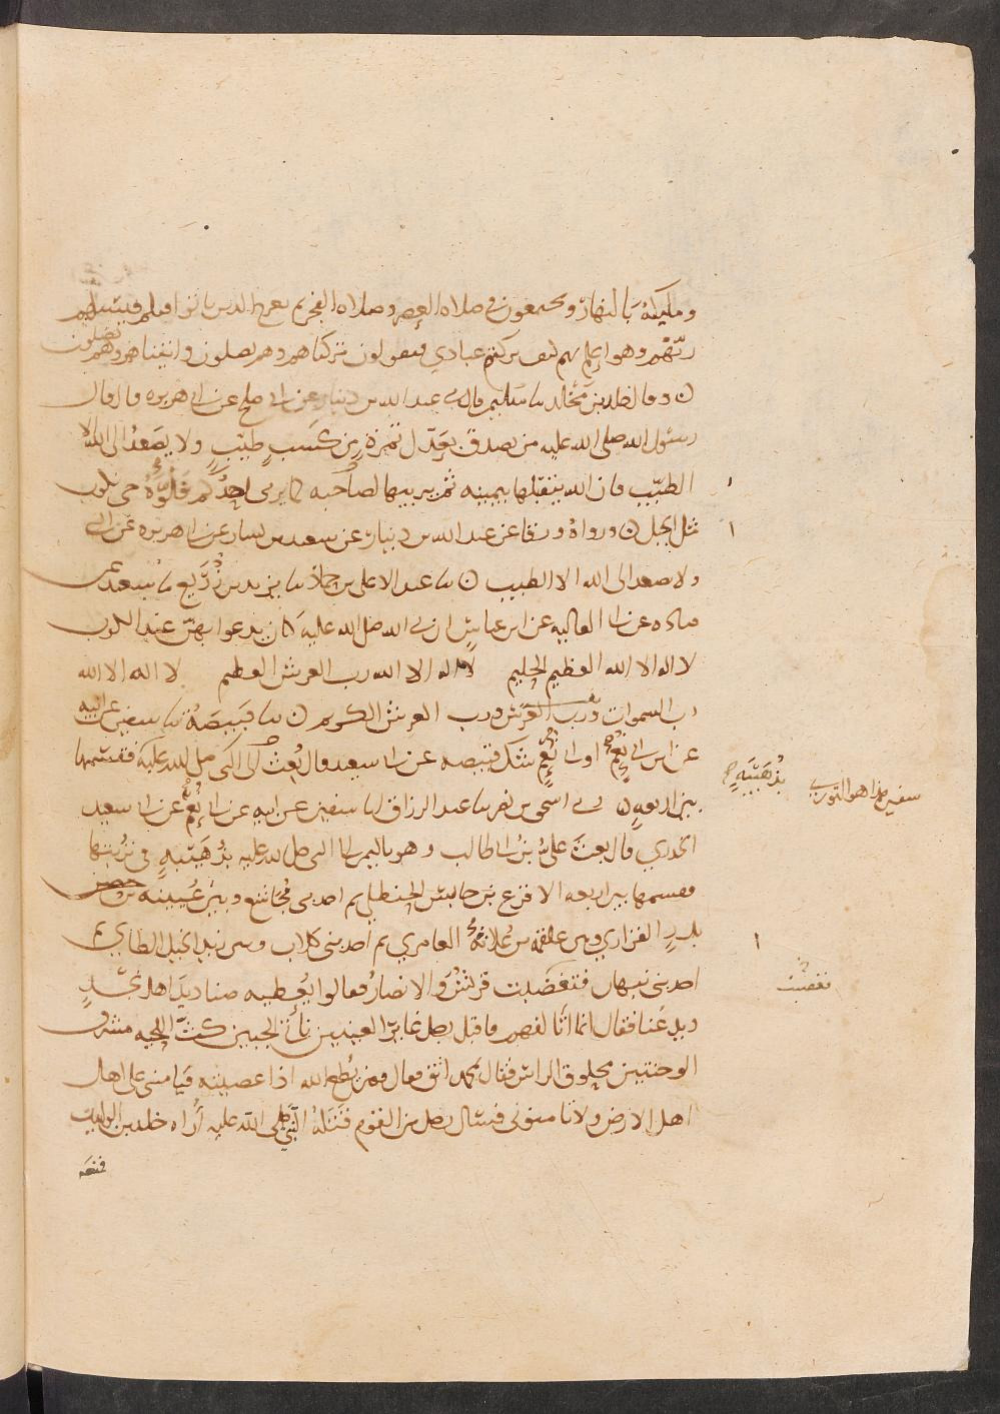 وملئكة بالنهار ويجتمعون في صلاه العصر وصلاه الفجر ثم يعرج الذين باتوا فيكم فيسئلهم
ربهم وهو اعلم بهم كيف تركتم عبادي فيقولون تركناهم وهم يصلون واتيناهم وهم يصلون
ن وقال خلد بن مخلد سا سليمن قال عبد الله بن دينار عن ابي صلح عن ابي هريره قال قال
رسول الله صلى الله عليه من تصدق بعدل تمرة من كسب طيب ولا يصعد الى الله الا
الطيب فان الله يتقبلها بيمينه ثم يربيها لصاحبه كما يربي احدكم فلوه حتى تكون
مثل الجبل ن ورواه ورقا عن عبد الله بن دينار عن سعيد بن يسار عن ابي هريره عن النبي
ولا يصعد الى الله الا الطيب ن سا عبد الاعلى بن حماد سا يزيد بن زريع سا سعيد عن
قتاده عن ابي العاليه عن ابن عباس ان نبي الله صلى الله عليه كان يدعوا بهن عند الكرب
لا اله الا الله العظيم الحليم لا اله الا الله رب العرش العظيم لا اله الا الله
رب السموات ورب العرش الكريم ن سا قبيصة سا سفين عن ابيه
عن ابن ابي نعم او ابي نعم شك قبيصه عن ابي سعيد قال بعث الى النبي صلى الله عليه فقسمها
بين اربعه ن اسحق بن نصر سا عبد الرزاق انا سفين عن ابيه عن ابن ابي نعم عن ابي سعيد
الخدري قال بعث علي بن ابي طالب وهو باليمن الى النبي صلى الله عليه بذهيبه في تربتها
فقسمها بين اربعه الاقرع بن حابس الحنظلي ثم احد بني مجاشع وبين عيينه بن حصن
بدر الفزاري وبين علقمه بن علاثة العامري ثم احد بني كلاب وبين زيد الخيل الطايي ثم
احد بني نبهان فتغضبت قريش والانصار فقالوا يعطيه صناديد اهل نجد
ويدعنا فقال انما اتالفهم فاقبل رجل غاير العينين ناتئ الجبين كث اللحيه مشرف
الوجنتين محلوق الراس فقال يمحمد اتق الله فقال فمن يطع الله اذا عصيته فيامنني على اهل
اهل الارض ولا تامنوني فسال رجل من القوم قتله النبي صلى الله عليه اراه خلد بن الوليد
فمنعه
بذهيبة
سفين هذا هو الثوري
فغضبت